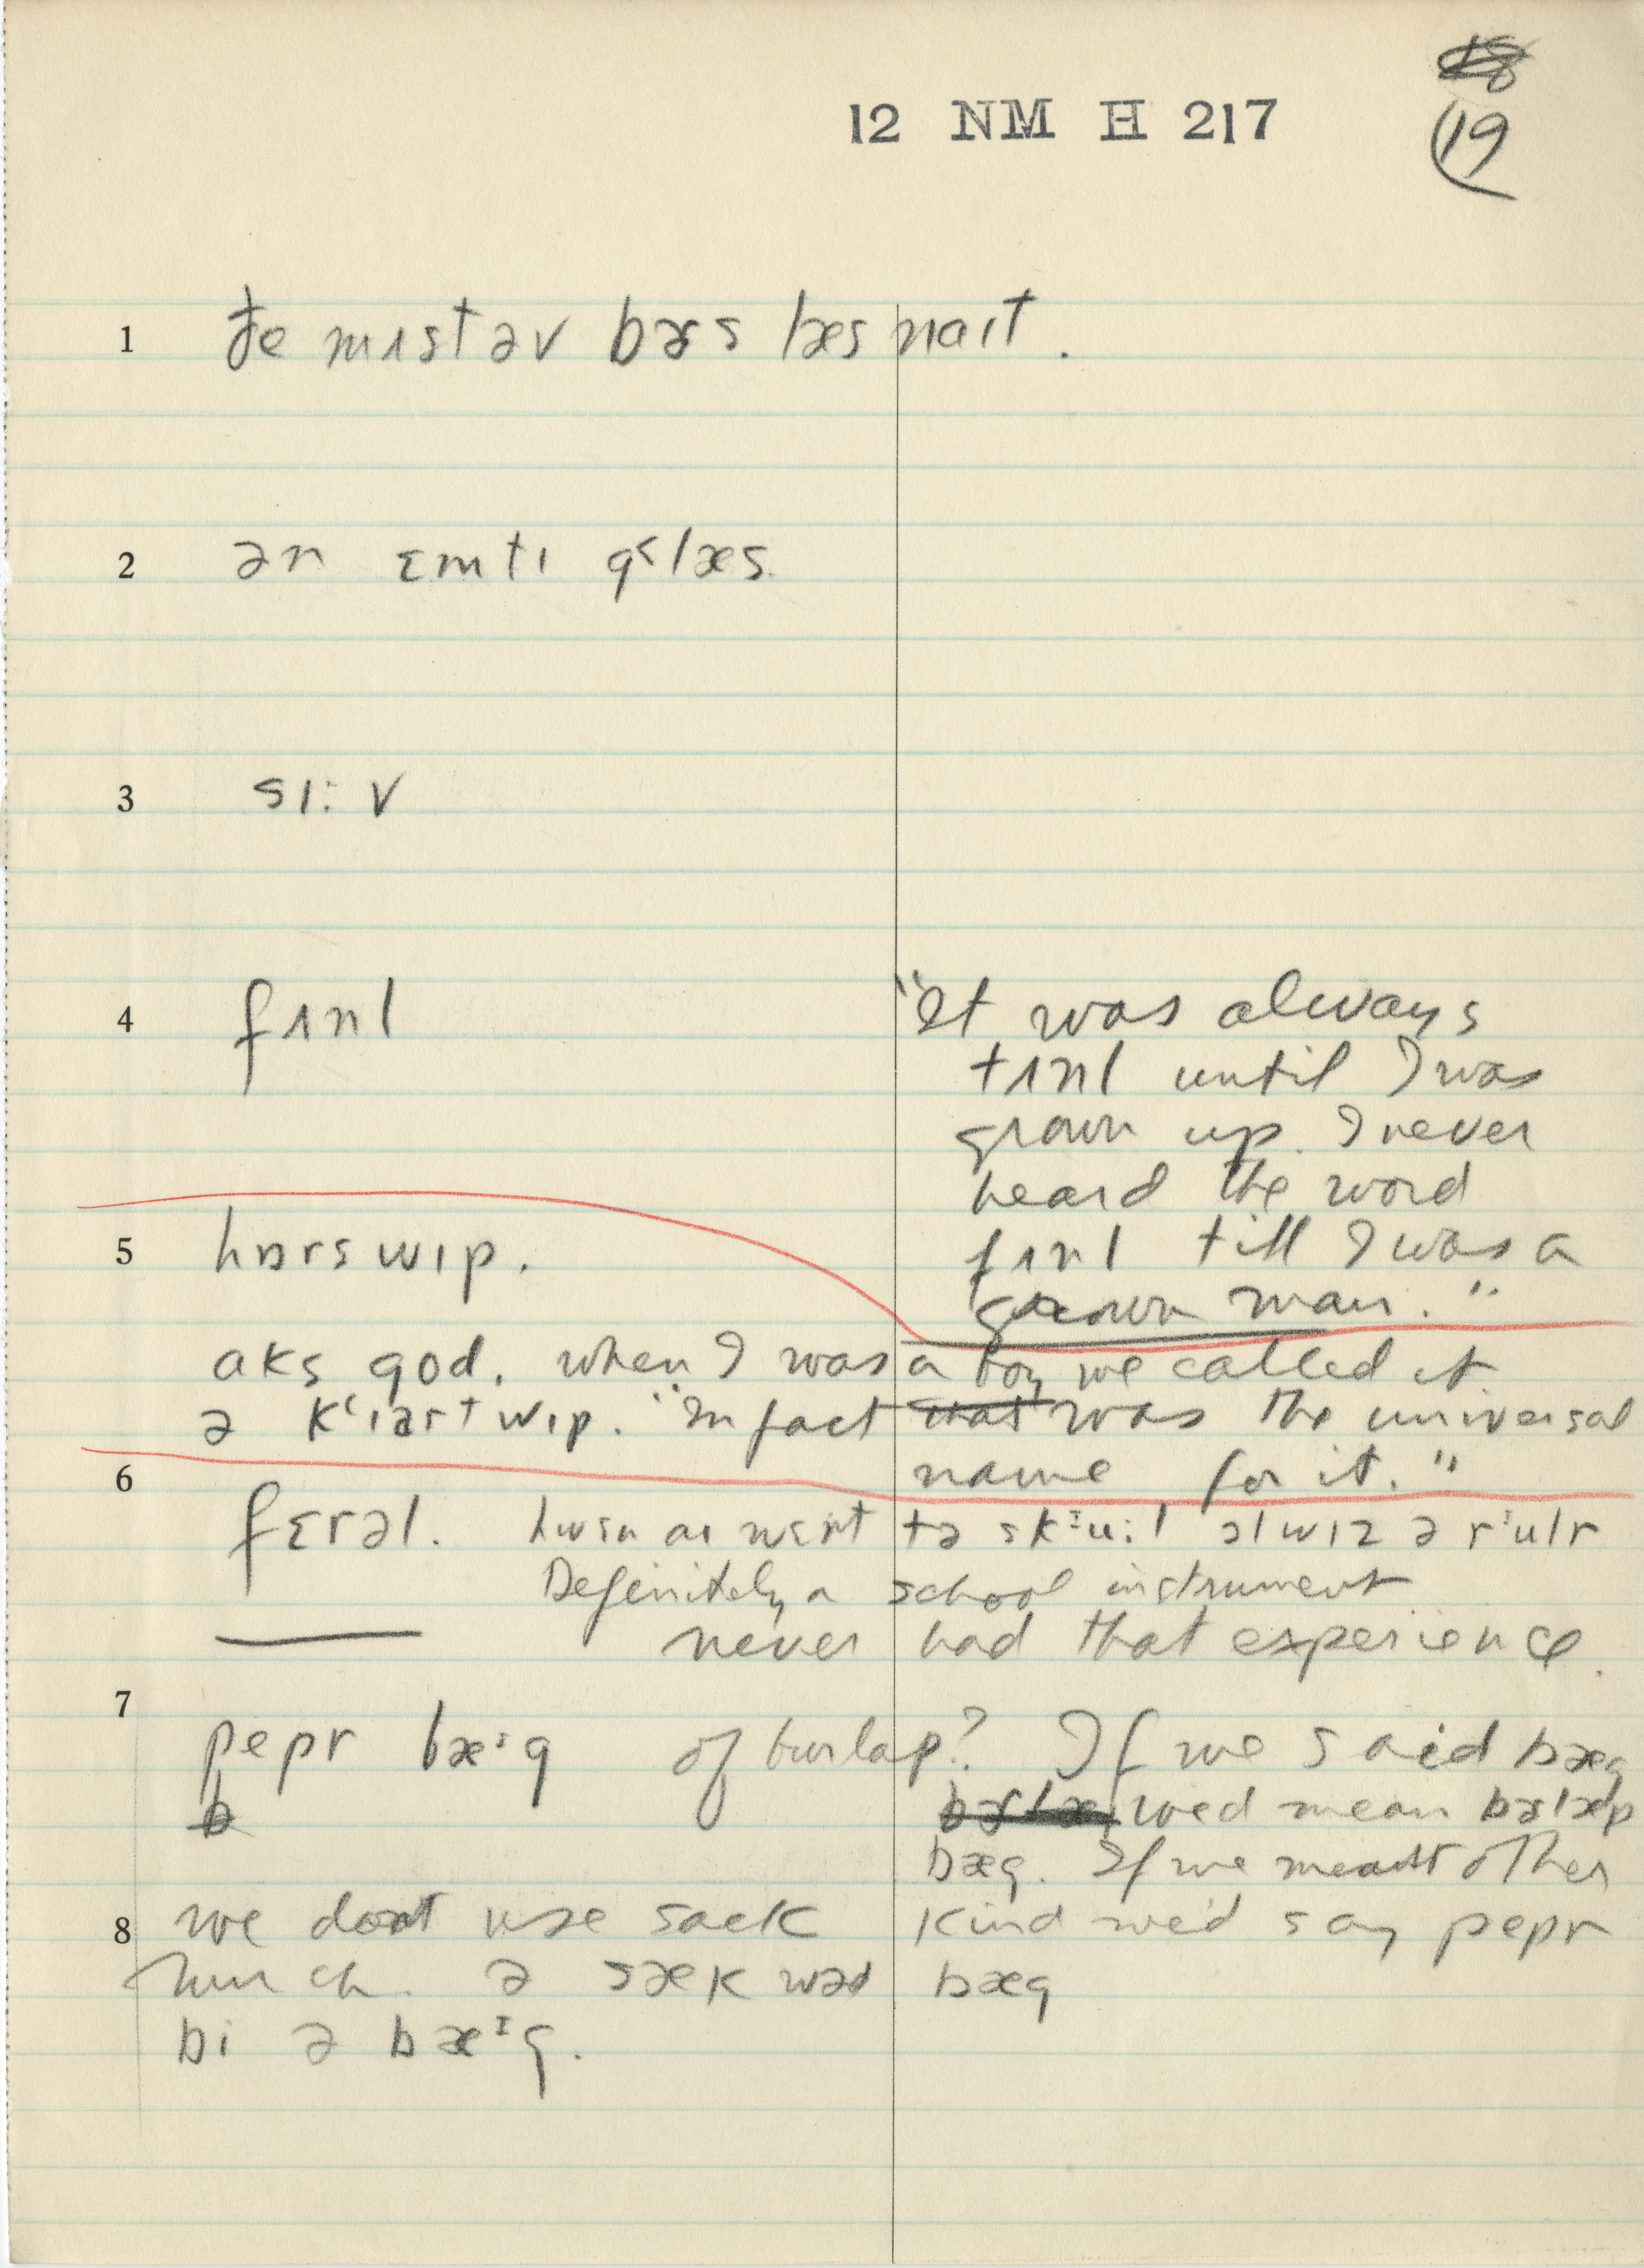 12 NM H 217
19
1 ðe mɪst əv bɝs læs naɪt.
2 ən ɛmtɪ g˂læs.
3 sɪ: v
4 fʌnl
"It was always
tʌnl until I was
grown up. I never
heard the word
fʌnl till I was a
grown man."
5 hɒrs wɪp.
aks god. when I was a boy we called it
ə k‘ɪart wɪp. "In fact that was the universal
name for it."
6 fɛrəl. hwɛn aɪ wɛnt tə skᶦu:l ɔlwɪz ə rᶦulr
Definitely a school instrument
never had that experience.
7 pepr bæᶦg of burlap? If we said bæg
wed mean bɝlæp
bæg. If we meant other
8 we dont use sack kind we'd say pepr
lunch. ə sæk wəd bæg
bi ə bæᶦg.